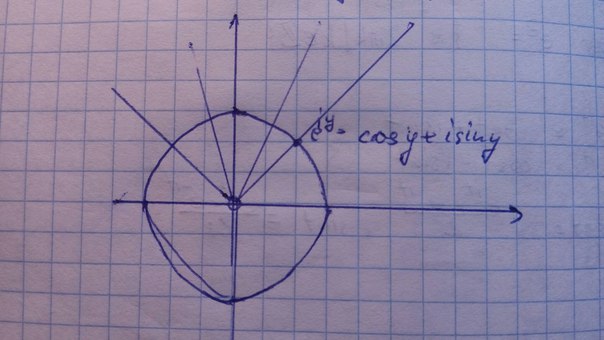 e^iy = cosy + isiny